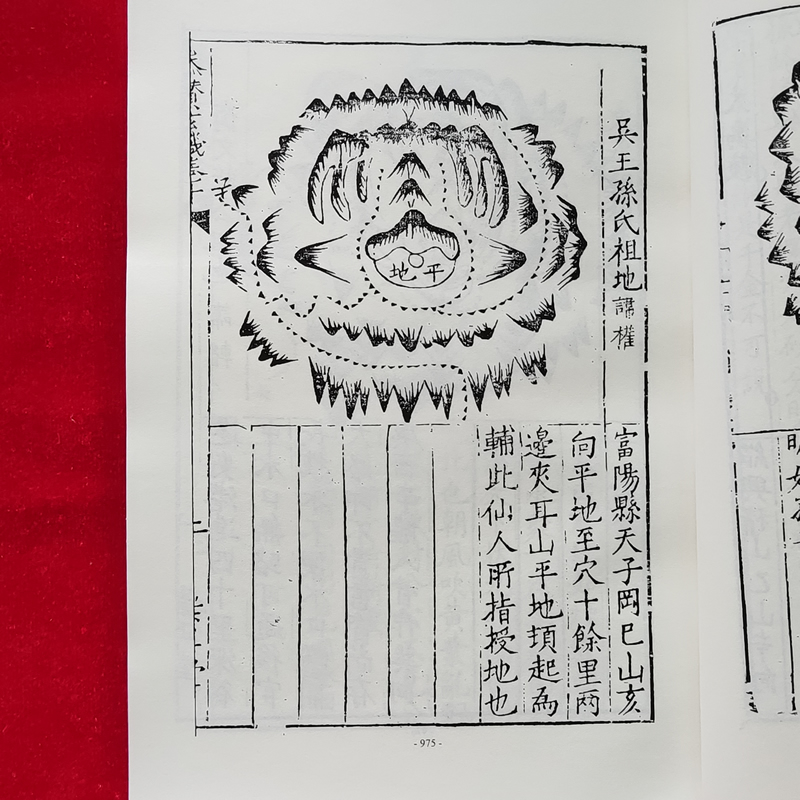 吴王孫氏祖地 諱權
平地
富陽縣天子岡巳山亥
向平地至穴十餘里两
邊夾耳山平地頓起為
輔此仙人所指授地也
- 975 -